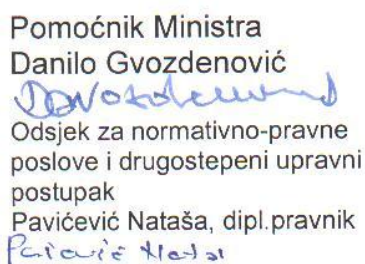 Pomoćnik Ministra
Danilo Gvozdenović
Odsjek za normativno-pravne
poslove i drugostepeni upravni
postupak
Pavićević Nataša, dipl.pravnik